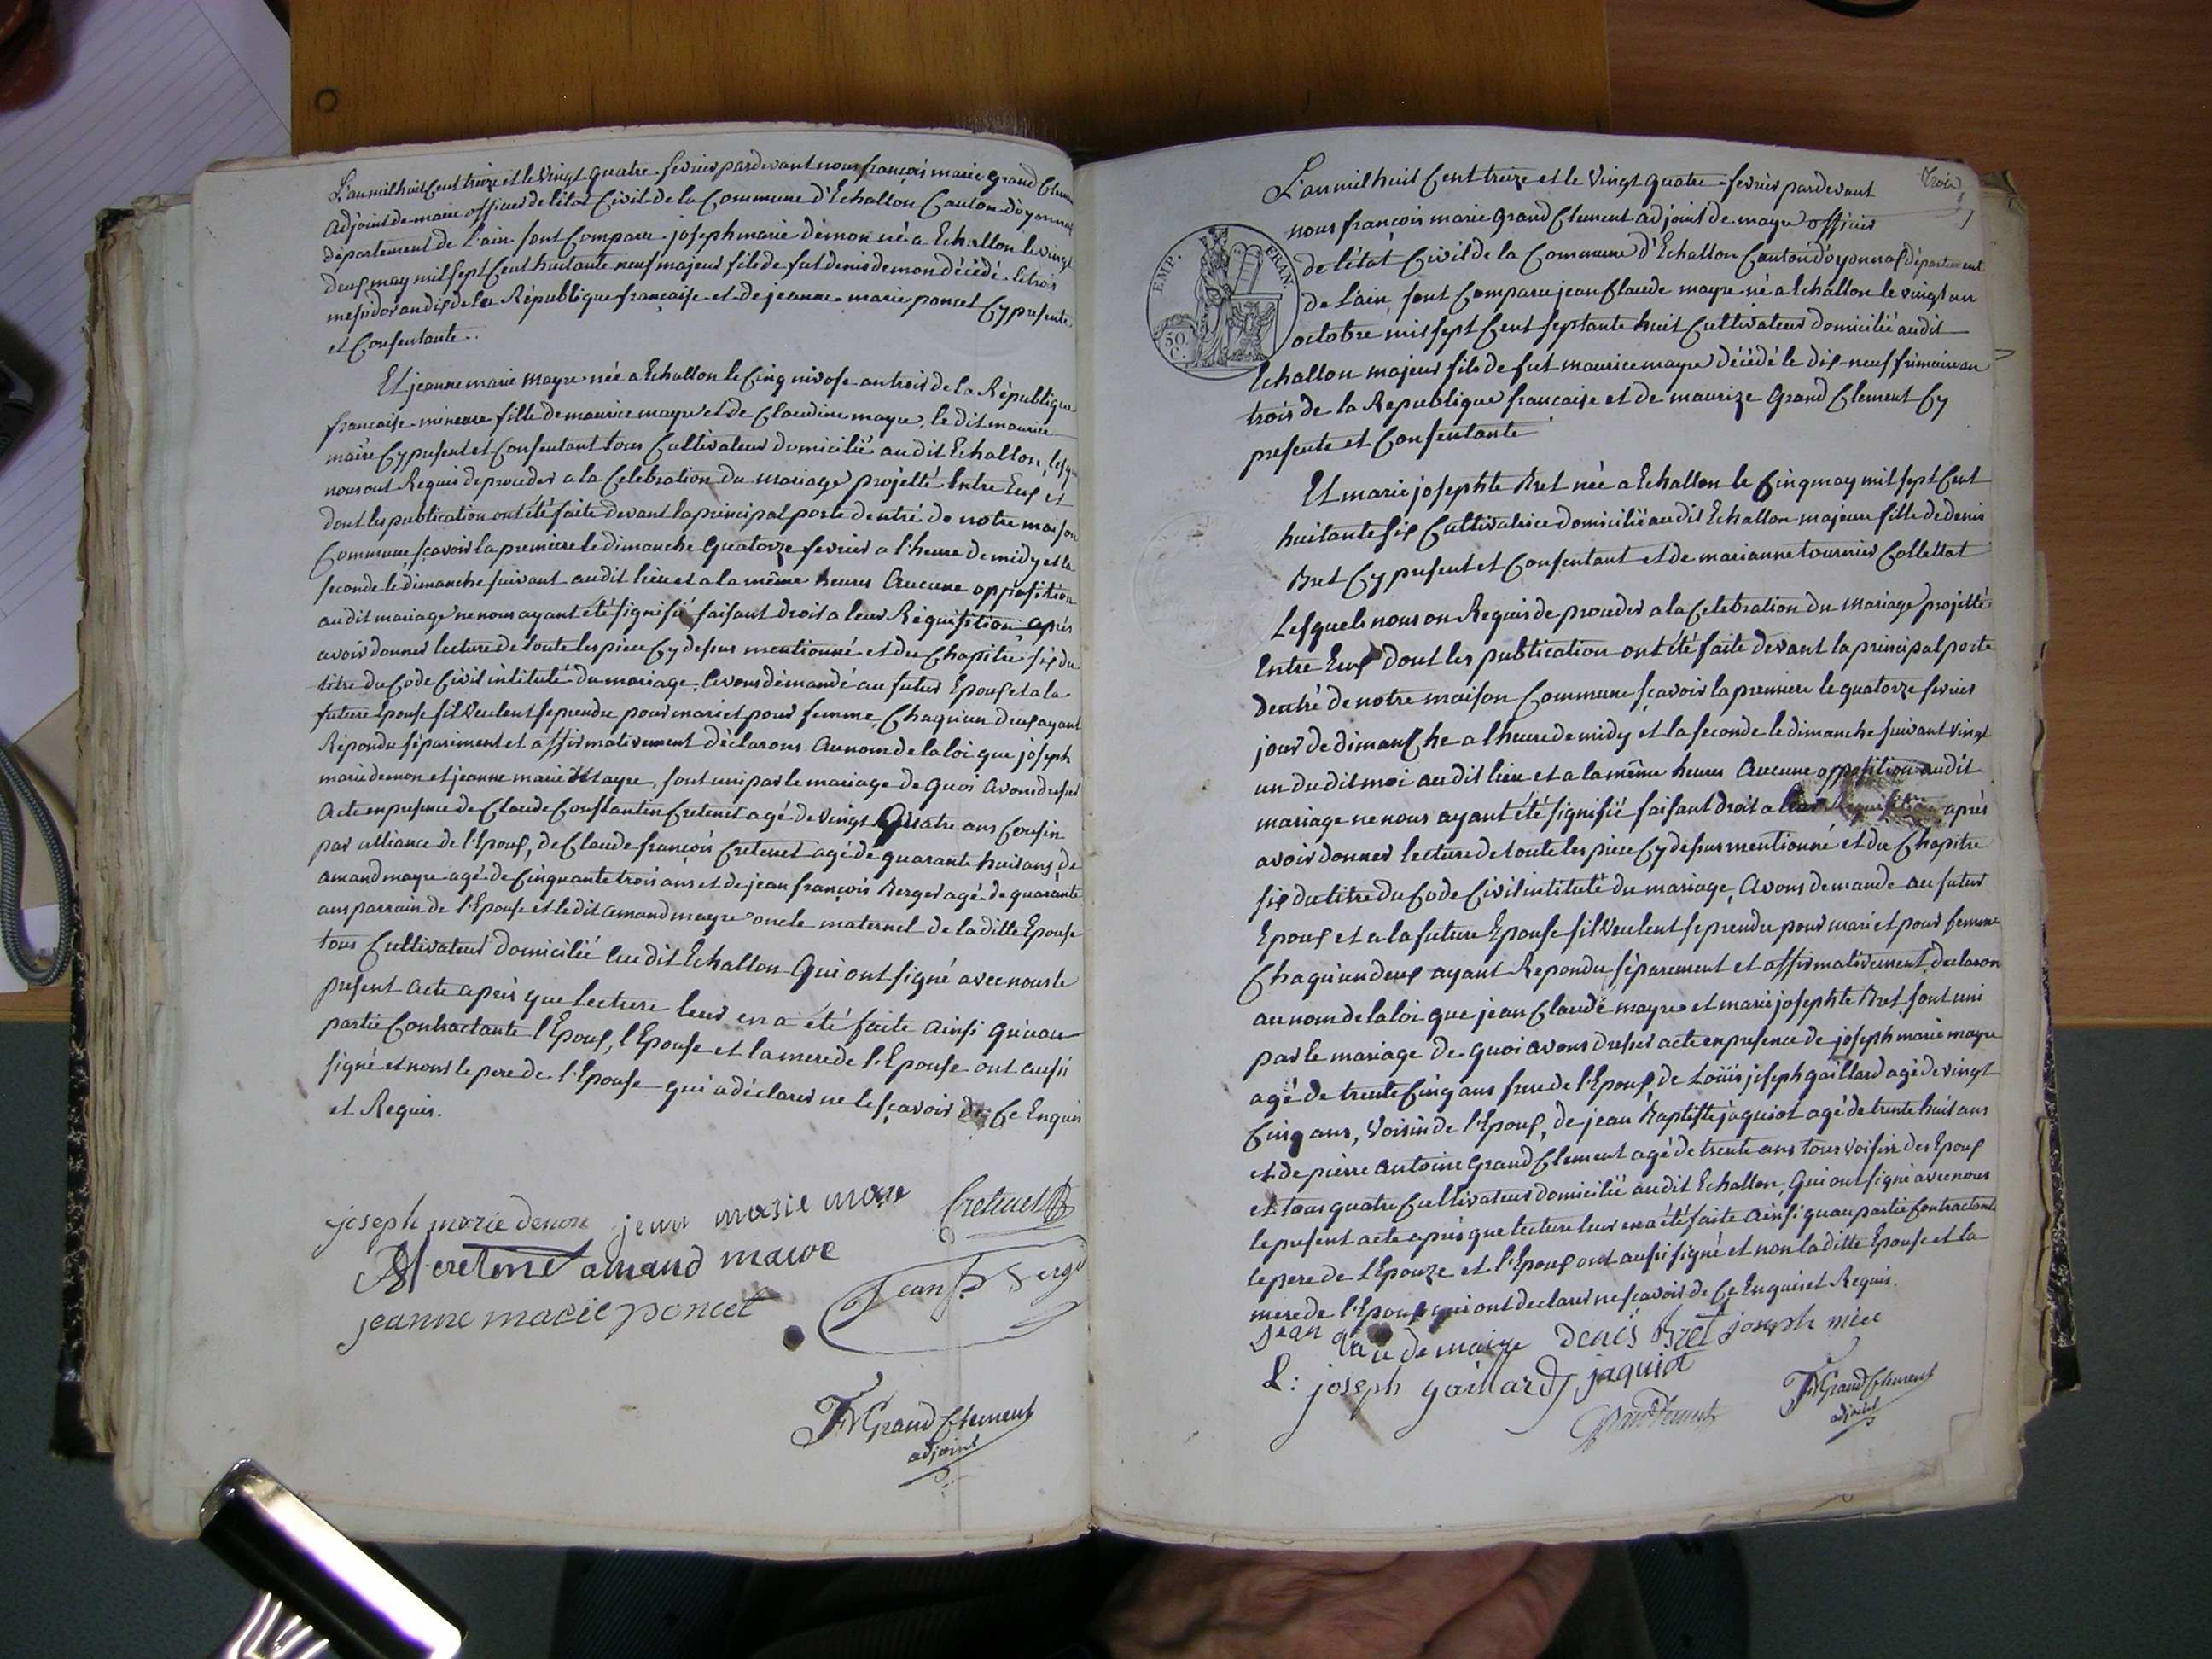 L'an mil huit Cent treize et le vingt quatre fevrier pardevant nous françois marie grand Clem
adjoint de maire officier de l'état Civil de la Commune d'Echallon Canton d'oyonnax
département de l'ain sont Comparu joseph marie démon né a Echallon le vingt
deux may mil sept Cent huitante neuf majeur fils de fut denis demon décédé le trois
mesidor an dix de la République française et de jeanne marie poncet Cy presente
et Consentante.
Et jeanne marie mayre née a Echallon le Cinq nivose an trois de la République
française mineure fille de maurice mayre et de Claudine mayre, le dit maurice
maire Cy present et Consentant tous Cultivateur domicilié au dit Echallon, lesq
nous ont Requis de proceder a la Celebration du mariage projetté Entre Eux et
dont les publication ont été faite devant la principal porte dentré de notre maison
Commune sçavoir la premiere le dimanche quatorze fevrier a l'heure de midy et la
seconde le dimanche suivant au dit lieu et a la même heures Aucune opposition
au dit mariage ne nous ayant été signifié faisant droit a leur Réquisition après
avoir donner lecture de toute les piece Cy dessus mentionné et du Chapitre six du
titre du Code Civil intitulé du mariage, avons démandé au futur Epoux et a la
future Epouse sil veulent se prendre pour mari et pour femme, Chaqu'un deux ayant
Répondu séparement et affirmativement déclarons au nom de la loi que joseph
marie demon et jeanne marie Mayre, sont uni par le mariage de quoi avons dresser
acte en presence de Claude Constantin Cretenet agé de vingt Quatre ans Cousin
par alliance de l'Epoux, de Claude françois Cretenet agé de quarante huit ans, de
amand mayre agé de Cinquante trois ans et de jean françois Berger agé de quarante
ans parrain de l'Epouse et le dit amand mayre oncle maternel de la ditte Epouse
tous Cultivateur domicilié au dit Echallon Qui ont signé avec nous le
present acte après que lecture leur en a été faite ainsi qu'au
partie Contractante l'Epoux, l'Epouse et la mere de l'Epouse ont aussi
signé et nons le pere de l'Epouse qui a déclarer ne le sçavoir de Ce Enquis
et Requis.
joseph marie demon jean marie mare Cretenet
Cretenet amand maire
jeanne marie poncet Jean f. Berge
FM Grand Clement
adjoint
trois
L'an mil huit Cent treize et le vingt quatre fevrier pardevant
nous françois marie Grand Clement adjoint de mayre officier
de l'état Civil de la Commune d'Echallon Canton d'oyonnax département
de l'ain sont Comparu jean Claude mayre né a Echallon le vingt un
octobre mil sept Cent septante huit Cultivateur domicilié au dit
Echallon majeur fils de fut maurice mayre décédé le dix-neuf frimaire an
trois de la Republique francaise et de maurize Grand Clement Cy
presente et Consentante
EMP. FRAN.
50.
C.
Et marie josephte Bret née a Echallon le Cinq may mil sept Cent
huitante six Cultivatrice domicilié au dit Echallon majeure fille de denis
Bret Cy present et Consentant et de marianne tournier Collettat
Lesquels nous on Requis de proceder a la Celebration du mariage projetté
Entre Eux dont les publication ont été faite devant la principal porte
dentré de notre maison Commune sçavoir la premiere le quatorze fevrier
jour de dimanche a l'heure de midy et la seconde le dimanche suivant vingt
un du dit moi au dit lieu et a la même heures Aucune opposition au dit
mariage ne nous ayant été signifié faisant droit a leur Requisition après
avoir donner lecture de toute les piece Cy dessus mentionné et du Chapitre
six du titre du Code Civil intitulé du mariage, Avons demande au futur
Epoux et a la future Epouse sil veulent se prendre pour mari et pour femme
Chaqu'un deux ayant Repondu séparement et affirmativement, declaron
au nom de la loi que jean Claude mayre et marie josephte Bret sont uni
par le mariage de quoi avons dresser acte en presence de joseph marie mayre
agé de trente Cinq ans frere de l'Epoux, de Loüis joseph gaillard agé de vingt
Cinq ans, Voisin de l'Epoux, de jean Baptiste jaquiot agé de trente huit ans
et de pierre antoine Grand Clement agé de trente ans tous voisin des Epoux
et tous quatre Cultivateur domicilié au dit Echallon, Qui ont signé avec nous
le present acte après que lecture leur en a été faite ainsi qu au partie Contractante
le pere de l'Epouze et l'Epoux ont aussi signé et non la ditte Epouse et la
mere de l'Epoux qui ont declarer ne sçavoir de Ce Enquis et Requis.
Jean Claude maire denis Bret joseph mère
L: joseph gaillard jaquiot
Grand Clement FM Grand Clement
adjoint